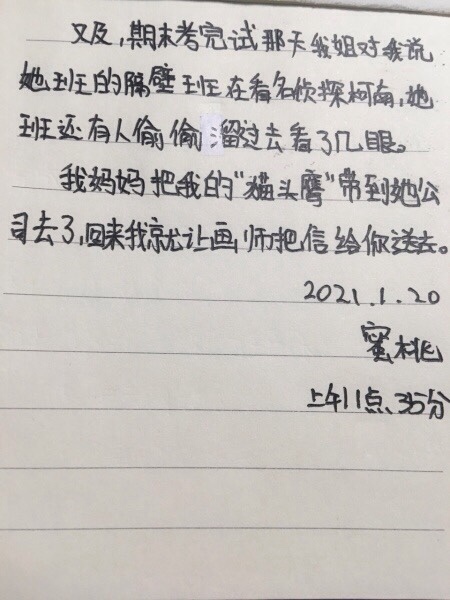 又及，期末考完试那天我姐对我说：
她班的隔壁班在看名侦探柯南，她
班还有人偷偷溜过去看了几眼。
我妈妈把我的“猫头鹰”带到她公
司去了，回来我就让画师把信给你送去。
2021.1.20
蜜桃
上午11点35分